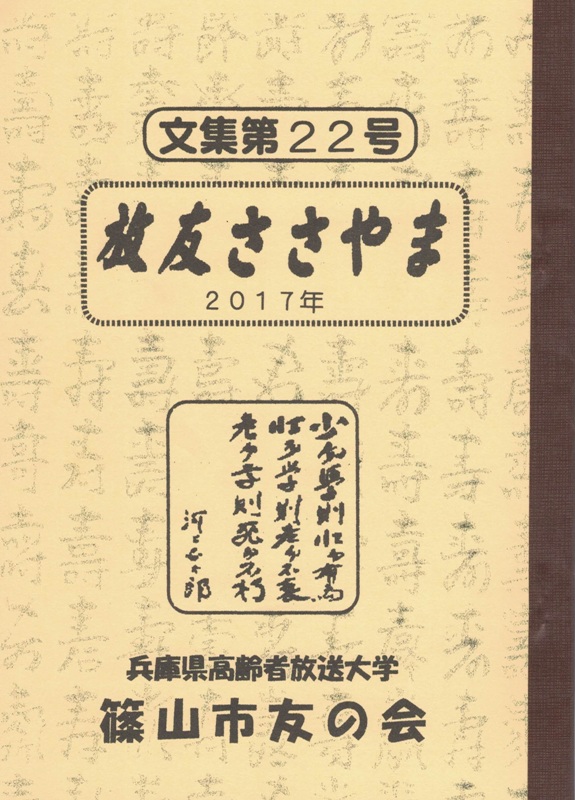 文集第22号
放友ささやま
2017年
少而學則壮而有為
壮而学則老而不衰
老而学則死而不朽
兵庫県高齢者放送大学
篠山市友の会